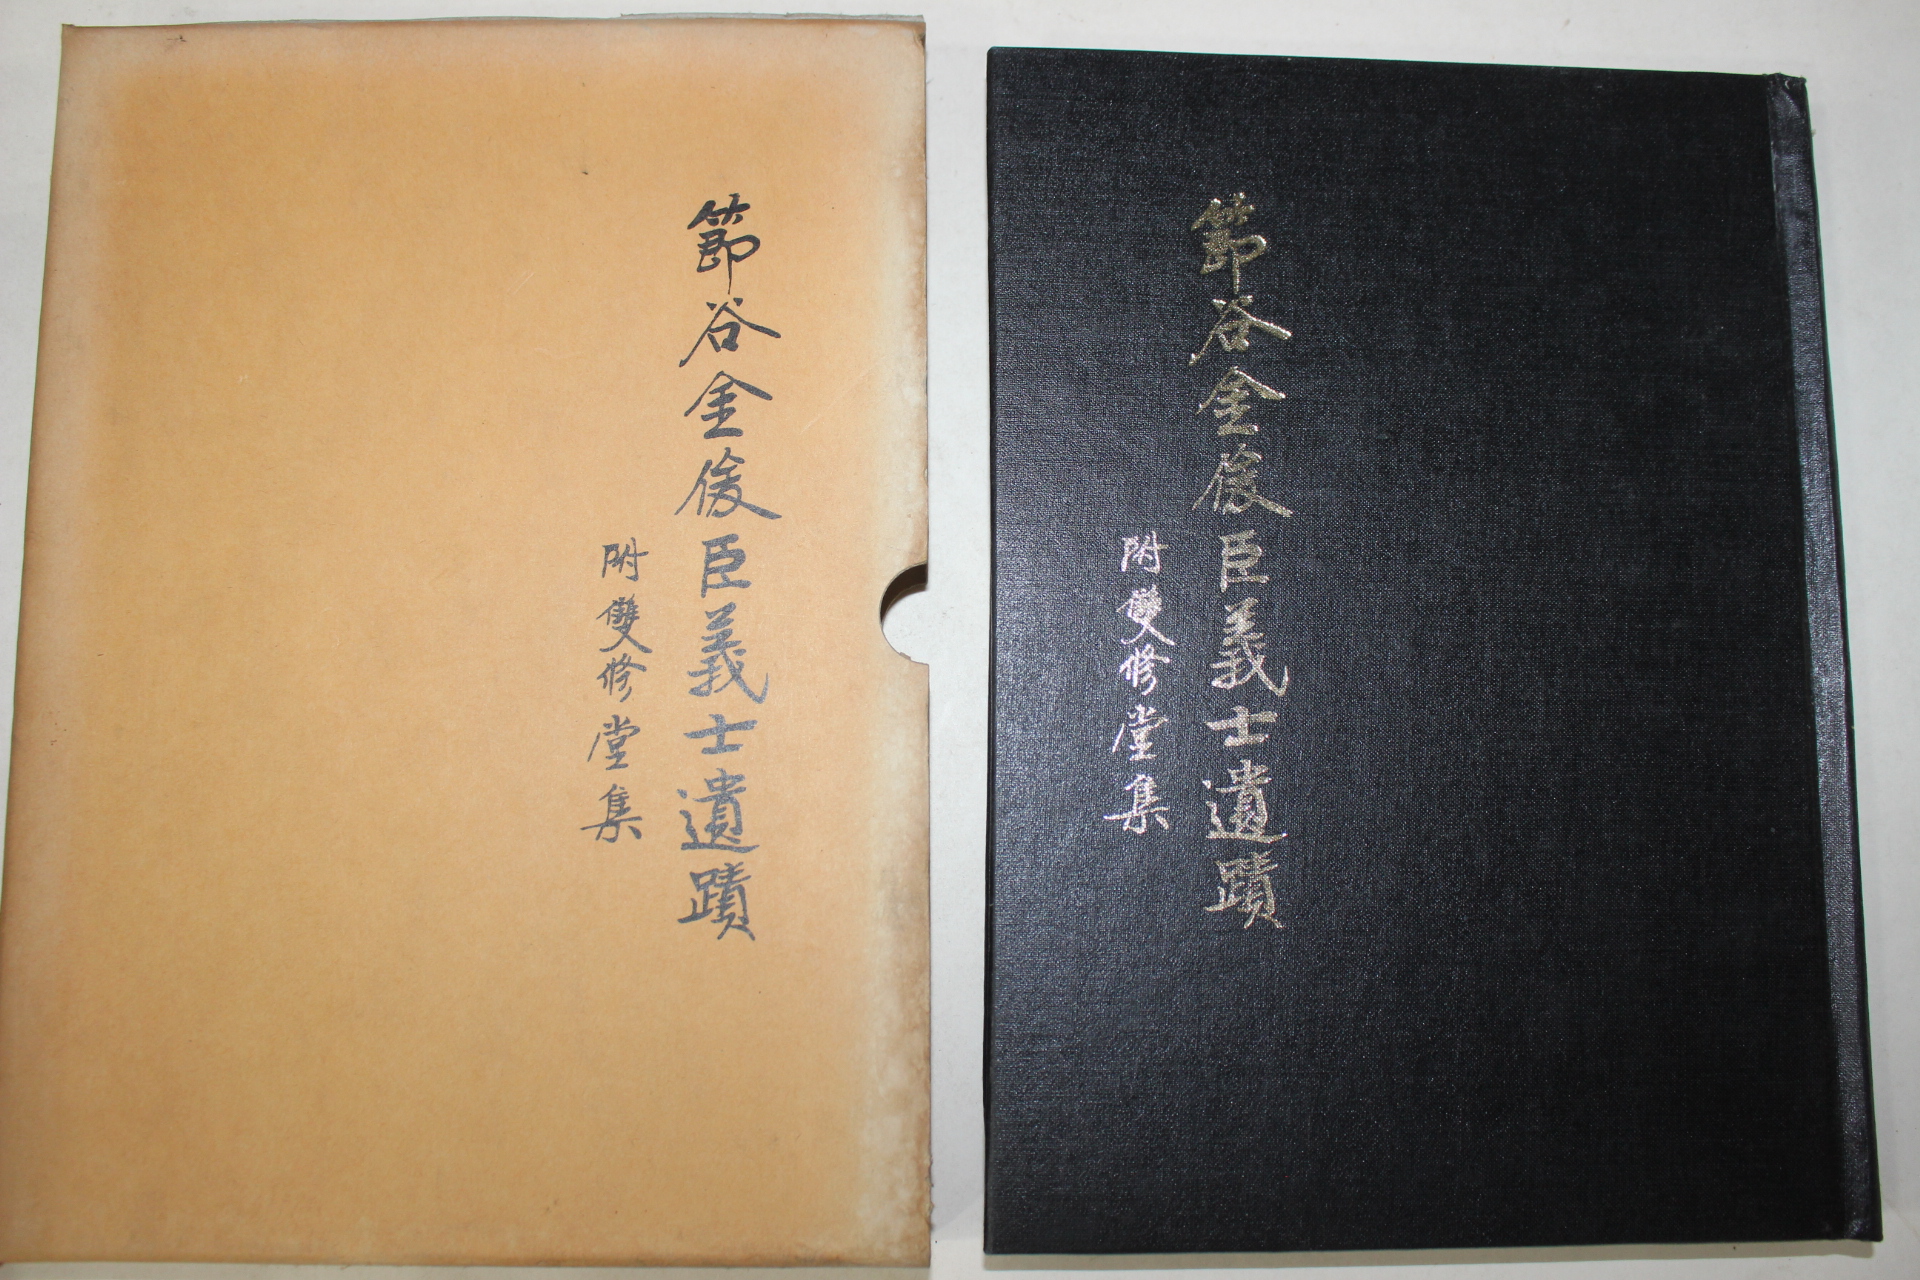 節谷金俊臣義士遺蹟
附雙修堂集
節谷金俊臣義士遺蹟
附雙修堂集